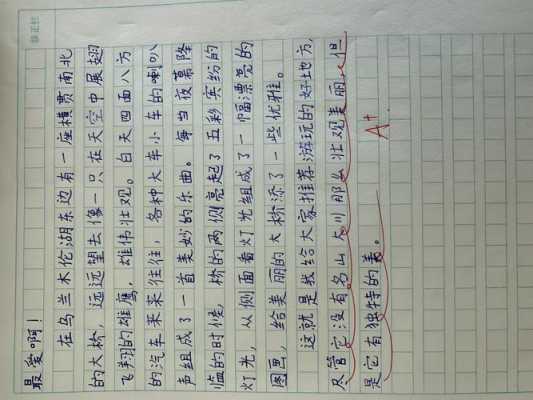 最爱啊！
在乌兰木伦湖东边有一座横贯南北
的大桥，远远望去像一只在天空中展翅
飞翔的雄鹰，雄伟壮观。白天四面八方
的汽车来来往往，各种大车小车的喇叭
声组成了一首美妙的乐曲。每当夜幕降
临的时候，桥的两侧亮起了五彩宾纷的
灯光，从侧面看灯光组成了一幅漂亮的
图画，给美丽的大桥添了一些优雅。
这就是我给大家推荐游玩的好地方，
尽管它没有名山大川那么壮观美丽，但
是它有独特的美。
A+